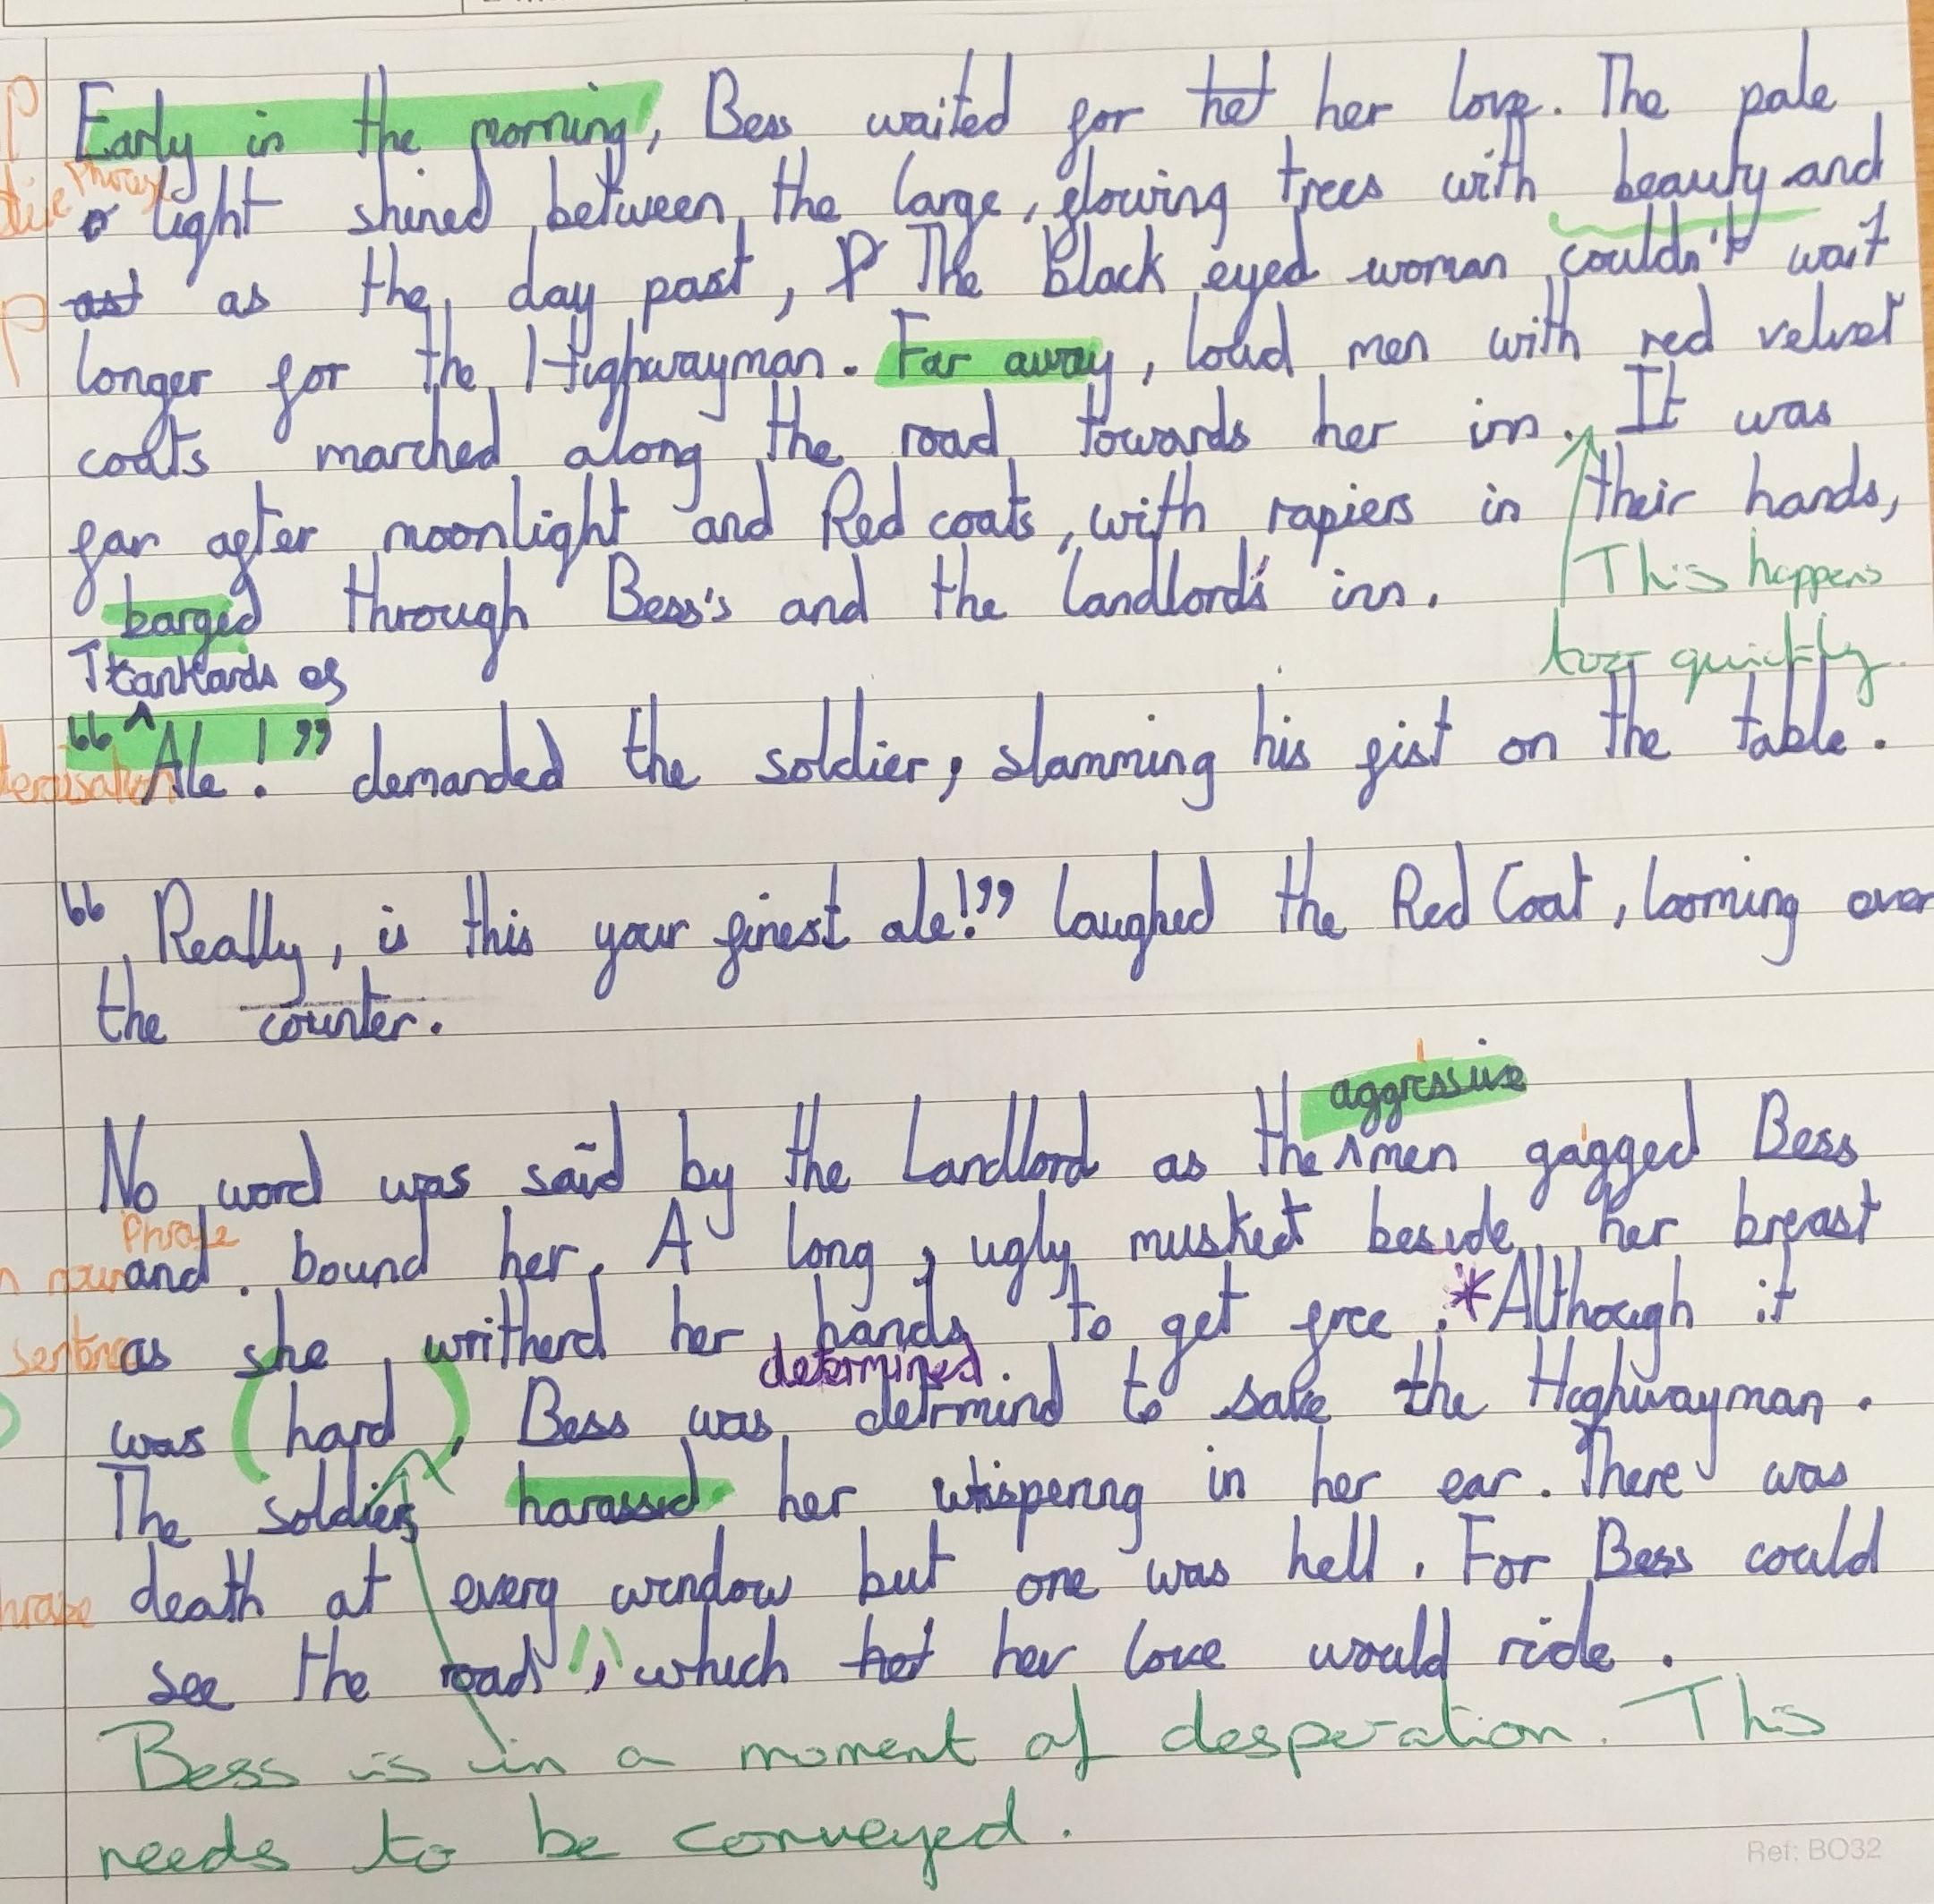 P
Early in the morning, Bess waited for het her love. The pale
Phrase
light shined between the large, glowing trees with beauty and
P
ast as the day past, The black eyed woman couldn't wait
longer for the Highwayman. Far away, loud men with red velvet
coats marched along the road towards her inn. It was
far after moonlight and Red coats, with rapiers in their hands,
This happens
barged through Bess's and the Landlord's inn.
too quickly.
Tankards of
"Ale!" demanded the soldier, slamming his fist on the table.
"Really, is this your finest ale!" laughed the Red Coat, looming over
the counter.
aggressive
No word was said by the Landlord as the men gagged Bess
Phrase
and bound her. A long, ugly musket beside her breast
as she writherd her hands to get free. *Although it
determined
was (hard), Bess was detrmind to save the Highwayman.
The soldiers harassed her whispering in her ear. There was
death at every window but one was hell. For Bess could
see the road, which het her love would ride.
Bess is in a moment of desperation. This
needs to be conveyed.
Ref: BO32